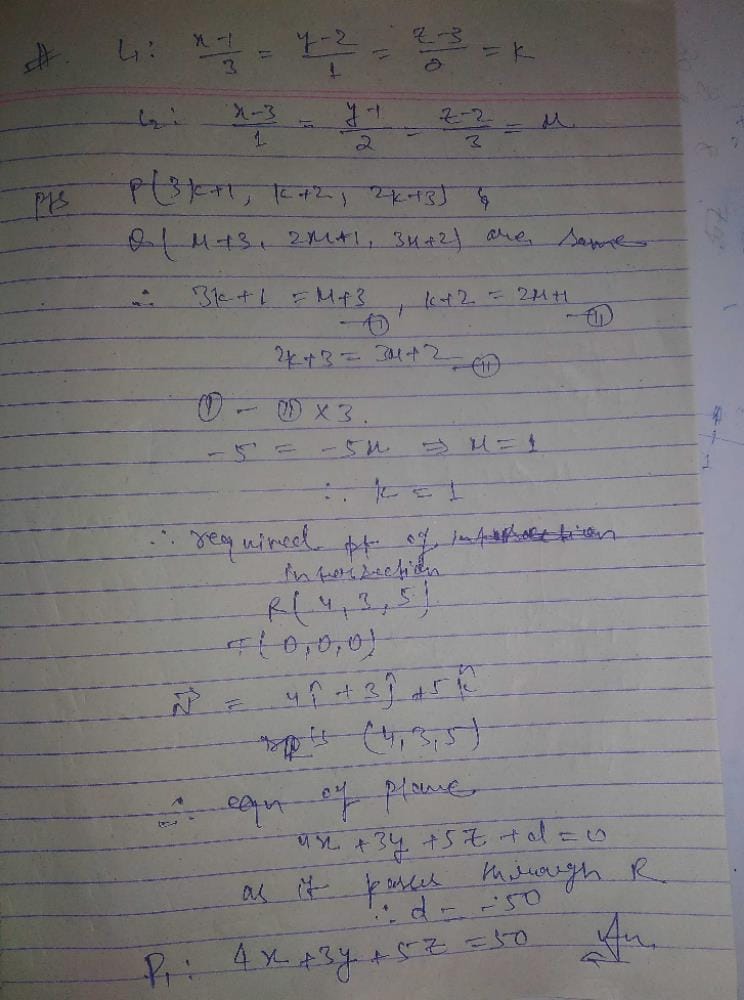 #. L₁: x-1/3 = y-2/1 = z-3/0 = k
L₂: x-3/1 = y-1/2 = z-2/3 = μ
P(3k+1, k+2, 2k+3) &
Q(μ+3, 2μ+1, 3μ+2) are same
∴ 3k+1 = μ+3, k+2 = 2μ+1
—Ⓘ —Ⓘ Ⓘ
2k+3 = 3μ+2
Ⓘ - Ⓘ Ⓘ ×3.
-5 = -5μ ⇒ μ = 1
∴ k = 1
∴ required pt of
intersection
R(4, 3, 5)
T(0, 0, 0)
N⃗ = 4î + 3ĵ + 5k̂
(4, 3, 5)
∴ eqn of plane
4x + 3y + 5z + d = 0
as it passes through R
∴ d = -50
P₁: 4x + 3y + 5z = 50 Ans.